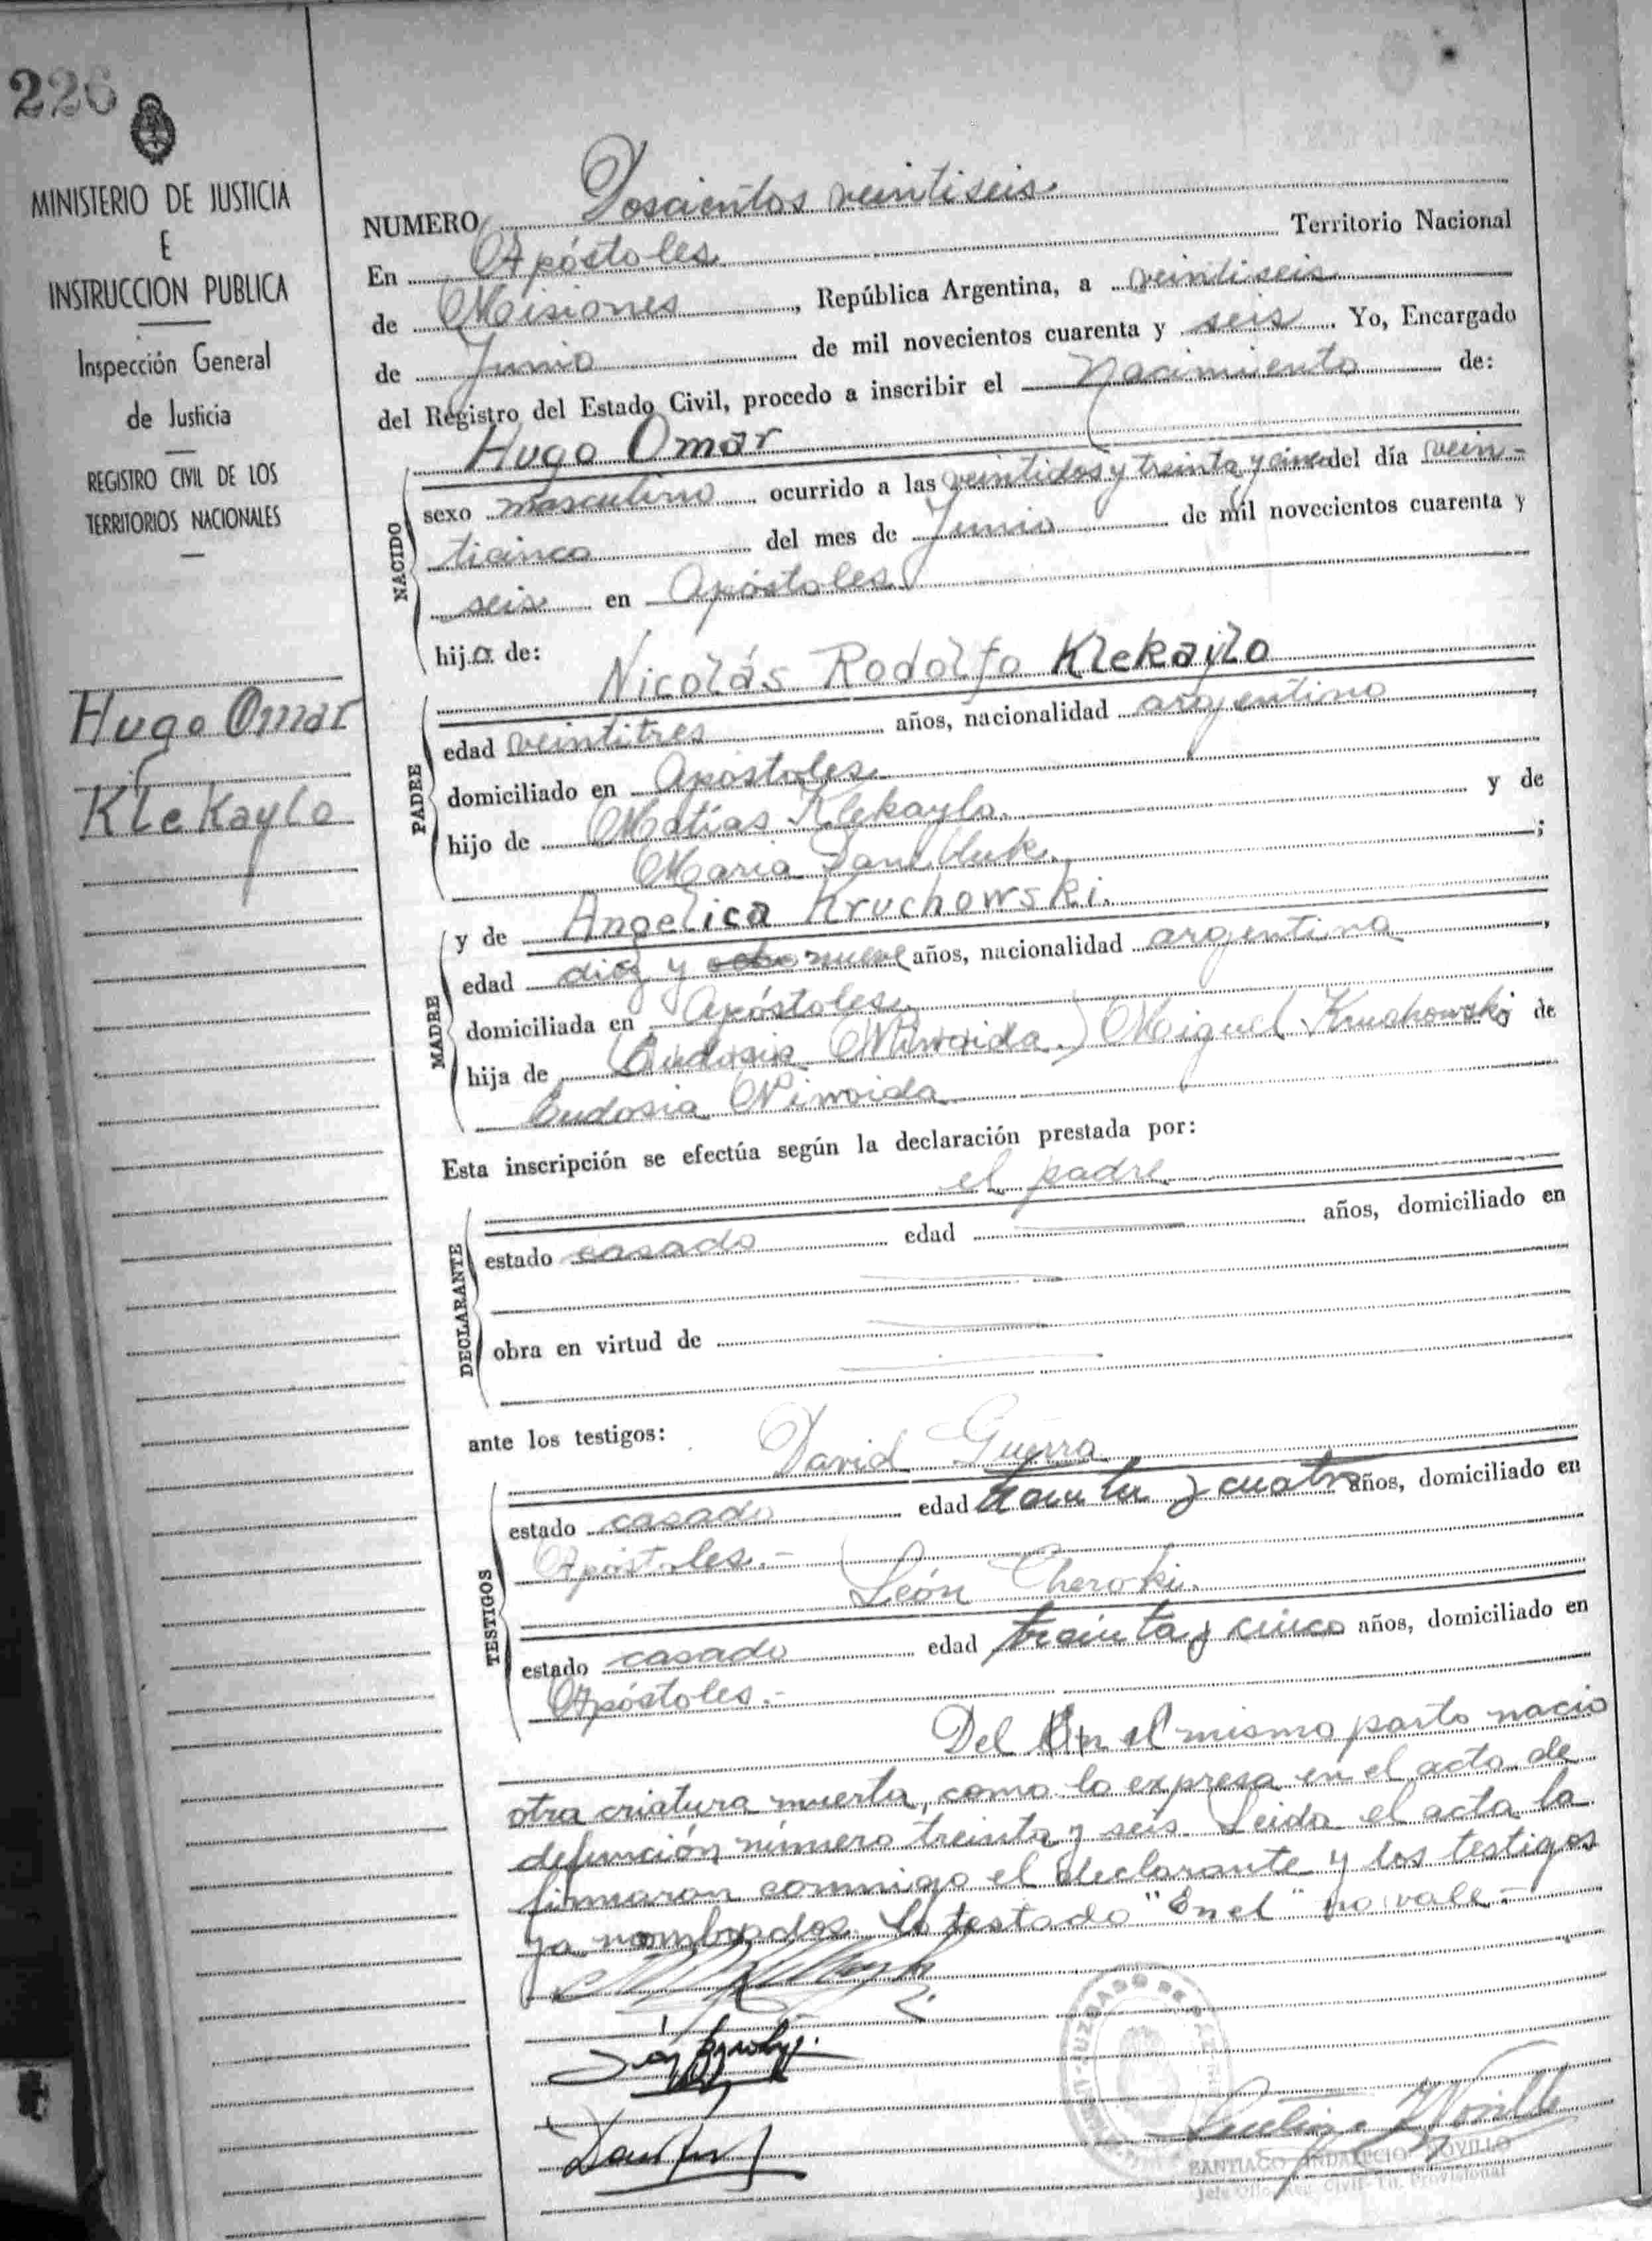 226
MINISTERIO DE JUSTICIA
E
INSTRUCCION PUBLICA
Inspección General
de Justicia
REGISTRO CIVIL DE LOS
TERRITORIOS NACIONALES
Hugo Omar
Klekaylo
NUMERO Doscientos veintiseis
En Apóstoles Territorio Nacional
de Misiones, República Argentina, a veintiseis
de Junio de mil novecientos cuarenta y seis. Yo, Encargado
del Registro del Estado Civil, procedo a inscribir el Nacimiento de:
Hugo Omar
NACIDO
sexo masculino ocurrido a las veintidos y treinta y cinco del día vein-
ticinco del mes de Junio de mil novecientos cuarenta y
seis en Apóstoles
hijo de:
Nicolás Rodolfo Klekaylo
PADRE
edad veintitres años, nacionalidad argentino,
domiciliado en Apóstoles
hijo de Matías Klekaylo y de
Maria ;
MADRE
y de Angelica Kruchowski.
edad diez y ocho nueve años, nacionalidad argentina,
domiciliada en Apóstoles
hija de Eudosia ) Miguel Kruchowski de
Eudosia
Esta inscripción se efectúa según la declaración prestada por:
el padre
DECLARANTE
estado casado edad años, domiciliado en
obra en virtud de
ante los testigos:
David Guerra
TESTIGOS
estado casado edad treinta y cuatro años, domiciliado en
Apóstoles.-
León Cheroki.
estado casado edad treinta y cinco años, domiciliado en
Apóstoles.-
Del En el mismo parto nacio
otra criatura muerta, como lo expresa en el acta de
defunción número treinta y seis. Leida el acta la
firmaron conmigo el declarante y los testigos
ya nombrados. Lo testado "En el" no vale-
JUZGADO DE
SANTIAGO INDALECIO NOVILLO
Jefe Ofic. Reg. Civil Tit. Provisional